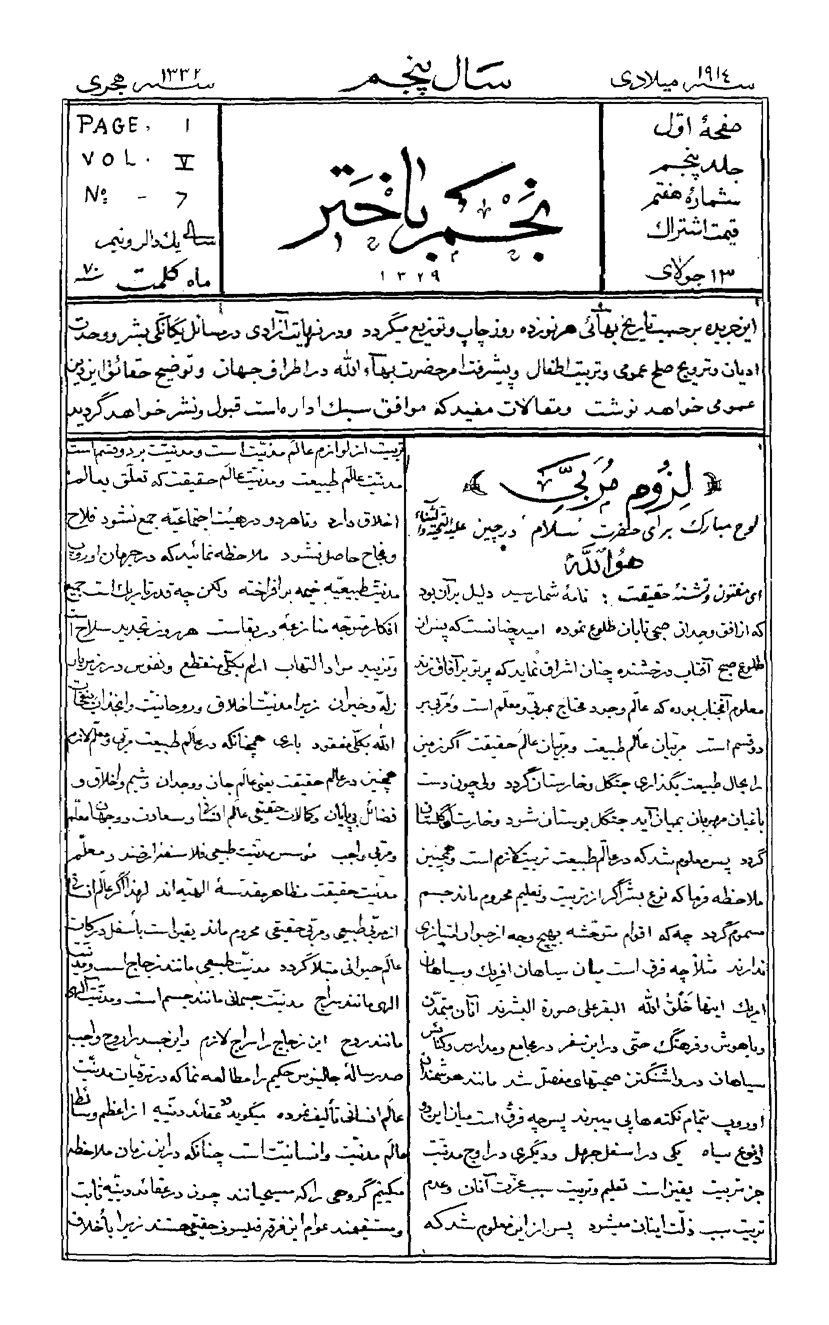 سنه ١٩١٤ ميلادى
سال پنجم
سنه ١٣٣٢ هجرى
صفحۀ اوّل
جلد پنجم
شمارۀ هفتم
قيمت اشتراك
١٣ جولاى
نجم باختر
١٣٢٩
PAGE. 1
VOL. V
No - 7
سالى يك دالر و نيم
ماه كلمت ٧٠
اين جريده بر حسب تاريخ بهائى هر نوزده روز چاپ و توزيع ميگردد و در نهايت آزادى در مسائل يگانگى بشر و وحدت
اديان و ترويج صلح عمومى و تربيت اطفال و پيشرفت امر حضرت بهآء الله در اطراف جهان و توضيح حقائق اين دين
عمومى خواهد نوشت و مقالات مفيد كه موافق سبك اداره است قبول و نشر خواهد گرديد
لزوم مربّى
لوح مبارك براى حضرت سلام در چين عليه التحيّة والثناء
هو الله
اى مفتون و تشنۀ حقيقت : نامۀ شما رسيد دليل بر آن بود
كه از افق وجدان صبحى تابان طلوع نموده اميد چنانست كه پس از آن
طلوع صبح آفتاب درخشنده چنان اشراق نمايد كه پرتو بر آفاق زند
معلوم آنجناب بوده كه عالم وجود محتاج بمربّى و معلّم است و مربّى بر
دو قسم است مربّيان عالم طبيعت و مربّيان عالم حقيقت اگر زمين
را بحال طبيعت بگذارى جنگل و خارستان گردد ولى چون دست
باغبان مهربان بميان آيد جنگل بوستان شود و خارستان گلستان
گردد پس معلوم شد كه در عالم طبيعت تربيت لازم است و همچنين
ملاحظه فرما كه نوع بشر اگر از تربيت و تعليم محروم ماند جسم
مسموم گردد چه كه اقوام متوحّشه بهيچ وجه از حيوان امتيازى
ندارند مثلاً چه فرق است ميان سياهان افريك و سياهان
امريك اينها خَلَقَ اللهُ البقر على صورة البشرند آنان متمدّن
و باهوش و فرهنگ حتّى در اين سفر در مجامع و مدارس و كنائس
سياهان در واشنگتن صحبتهاى مفصّل شد مانند هوشمندان
اوروپ بتمام نكته ها پى ميبرند پس چه فرق است ميان اين دو
نوع سياه يكى در اسفل جهل و ديگرى در اوج مدنيّت
جز تربيت يقين است تعليم و تربيت سبب عزّت آنان و عدم
تربيت سبب ذلّت اينان ميشود پس از اين معلوم شد كه
تربيت از لوازم عالم مدنيّت است و مدنيّت بر دو قسم است
مدنيّت عالم طبيعت و مدنيّت عالم حقيقت كه تعلّق بعالم
اخلاق دارد و تا هر دو در هيئت اجتماعيّه جمع نشود فلاح
و نجاح حاصل نشود ملاحظه نمائيد كه در جهان اوروپ
مدنيّت طبيعيّه خيمه بر افراخته ولكن چه قدر تاريك است جميع
افكار متوجّه منازعۀ در بقاست هر روز تجديد سلاح است
و تزييد موادّ التهاب آرام بكلّى منقطع و نفوس در زير بار
زلّه و حيران زيرا مدنيّت اخلاق و روحانيّت و انجذاب بنفحات
الله بكلّى مفقود بارى همچنانكه در عالم طبيعت مربّى و معلّم لازم
همچنين در عالم حقيقت يعنى عالم جان و وجدان و شيم و اخلاق و
فضائل بى پايان و كمالات حقيقى عالم انسانى و سعادت دو جهان معلّم
و مربّى واجب مؤسّس مدنيّت طبيعى فلاسفۀ ارضند و معلّم
مدنيّت حقيقت مظاهر مقدّسۀ الهيّه اند لهذا اگر عالم انسانى
از مربّى طبيعى و مربّى حقيقى محروم ماند يقين است باسفل دركات
عالم حيوانى مبتلا گردد مدنيّت طبيعى مانند زجاج است و مدنيّت
الهى مانند سراج مدنيّت جسمانى مانند جسم است و مدنيّت الهى
مانند روح اين زجاج را سراج لازم و اين جسد را روح واجب
صد رسالۀ جالينوس حكيم را مطالعه نما كه در ترقيات مدنيّت
عالم انسانى تأليف نموده ميگويد كه عقائد دينيّه از اعظم وسائط
عالم مدنيّت و انسانيّت است چنانكه در اين زمان ملاحظه
ميكنيم گروهى را كه مسيحيانند چون در عقائد دينيّه ثابت
و مستقيمند عوام اين فرقه فيلسوف حقيقى هستند زيرا باخلاق